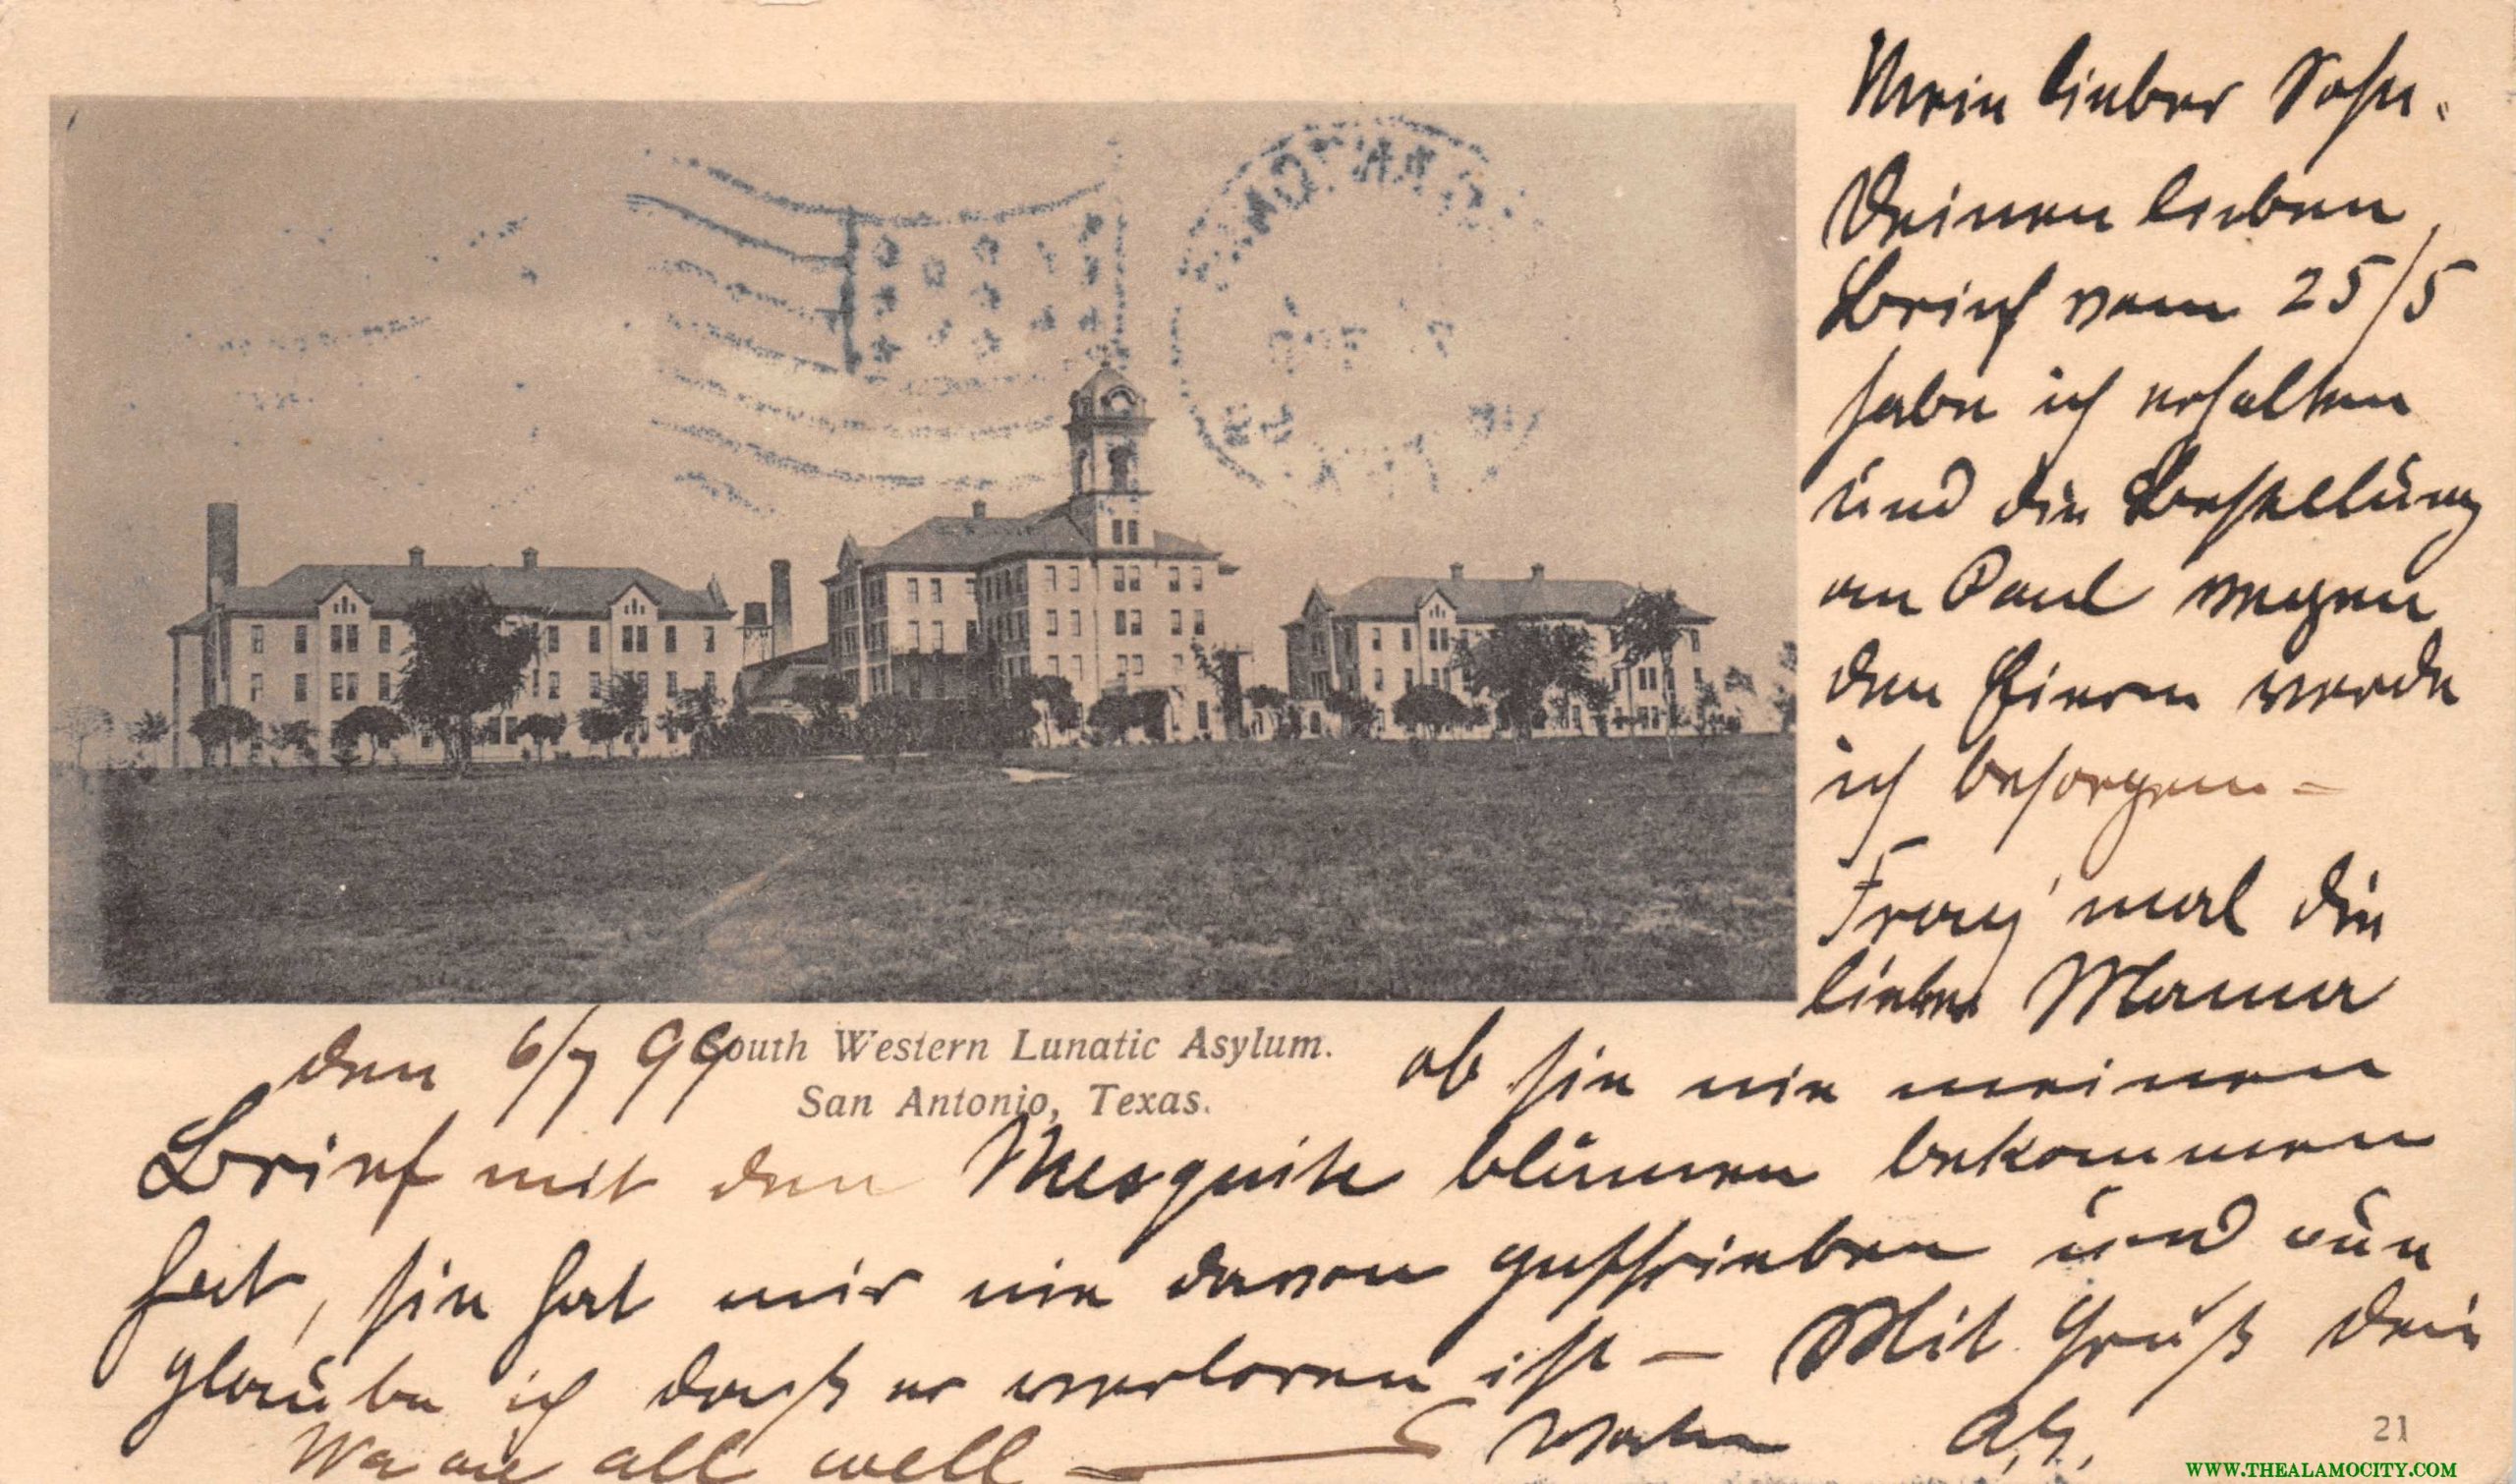 Mein lieber Sohn.
Deinen lieben
Brief vom 25/5
habe ich erhalten
und die Bestellung
an Paul wegen
den werde
ich besorgen –
Frag' mal die
liebe Mama
den 6/7 99
South Western Lunatic Asylum.
San Antonio, Texas.
ob sie nie meinen
Brief mit den Mesquite blumen bekommen
hat, sie hat mir nie davon geschrieben und nun
glaube ich daß er verloren ist – Mit Gruß Dein
We are all well — Vater
21
WWW.THEALAMOCITY.COM